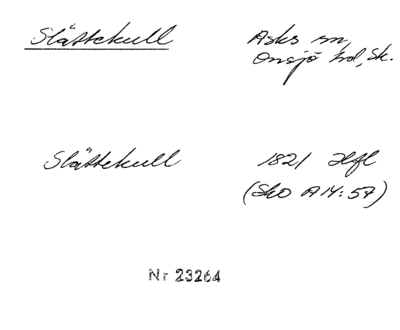 Slättekull
Asks sn
Onsjö hd, Sk.
Slättekull
1821 Hfl
(SkO A14:57)
Nr 23264